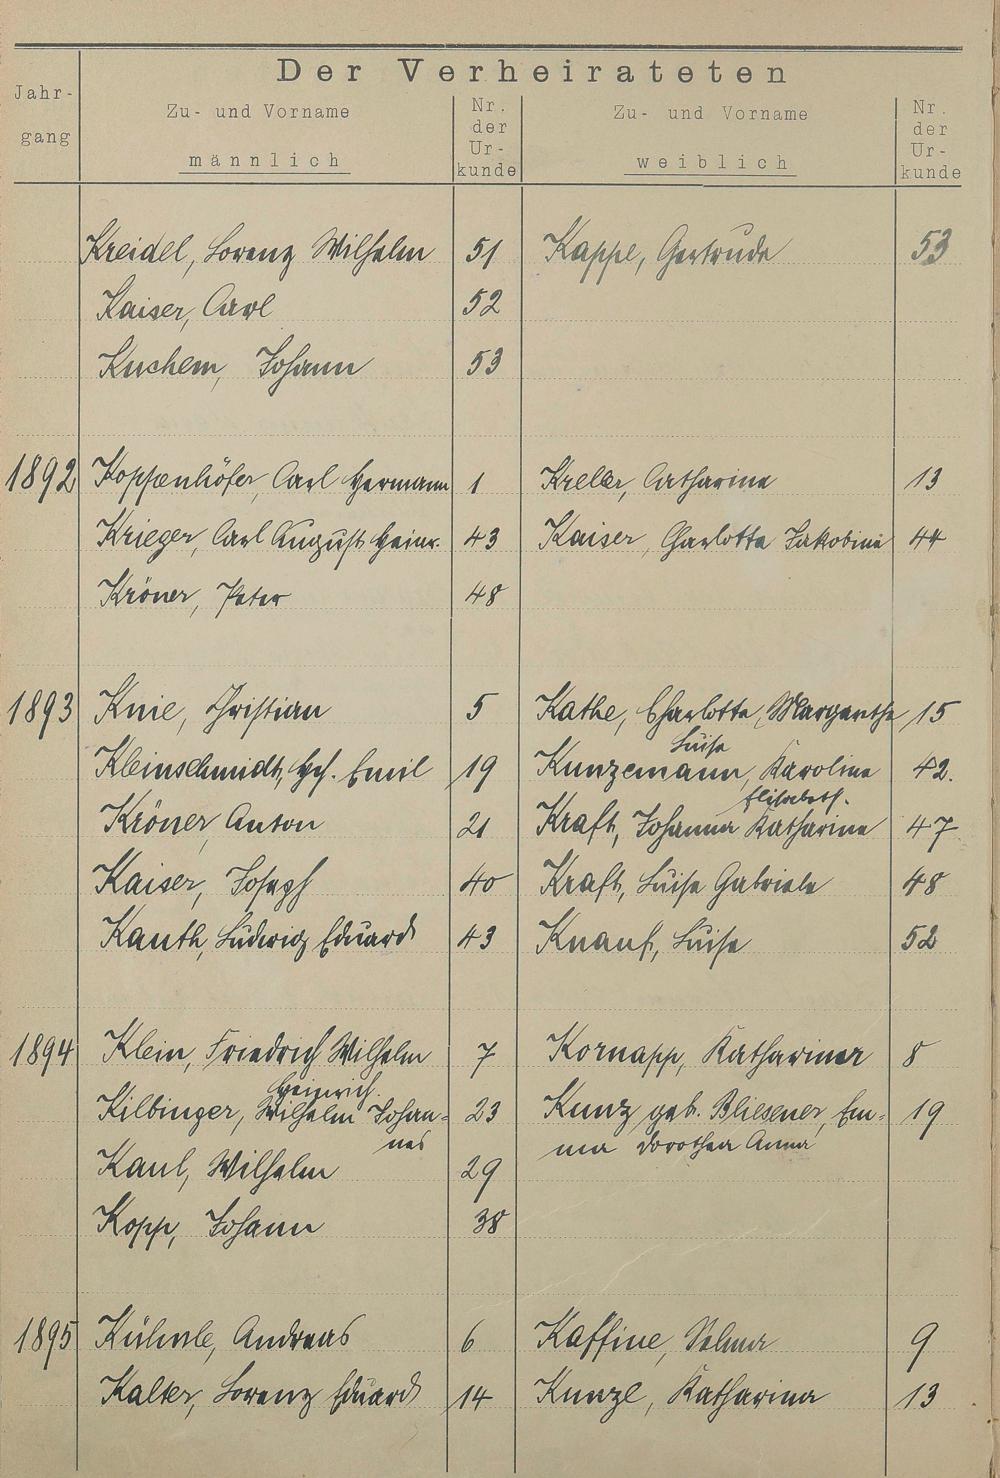 Der Verheirateten
Jahrgang
Zu- und Vorname männlich
Nr. der Urkunde
Zu- und Vorname weiblich
Nr. der Urkunde
Kreidel, Lorenz Wilhelm 51 Kappel, Gertrude 53
Kaiser, Carl 52
Kuchem, Johann 53
1892 Koppenhöfer, Carl Hermann 1 Kreller, Catharine 13
Krieger, Carl August Heinr. 43 Kaiser, Charlotte Jakobine 44
Kröner, Peter 48
1893 Knie, Christian 5 Kathe, Charlotte, Margarethe 15
Luise
Kleinschmidt, Hch. Emil 19 Kunzemann, Karoline 42.
Elisabeth.
Kröner, Anton 21 Kraft, Johanna Katharine 47
Kaiser, Joseph 40 Kraft, Luise Gabriele 48
Kauth, Ludwig Eduard 43 Knauf, Luise 52
1894 Klein, Friedrich Wilhelm 7 Kornapp, Katharina 8
Heinrich
Kilbinger, Wilhelm Johan= 23 Kunz geb. Bliesener, Em= 19
nes ma Dorothea Anna
Kaul, Wilhelm 29
Kopp, Johann 38
1895 Kühnle, Andreas 6 Kaffine, Selma 9
Kalter, Lorenz Eduard 14 Kunzl, Katharina 13